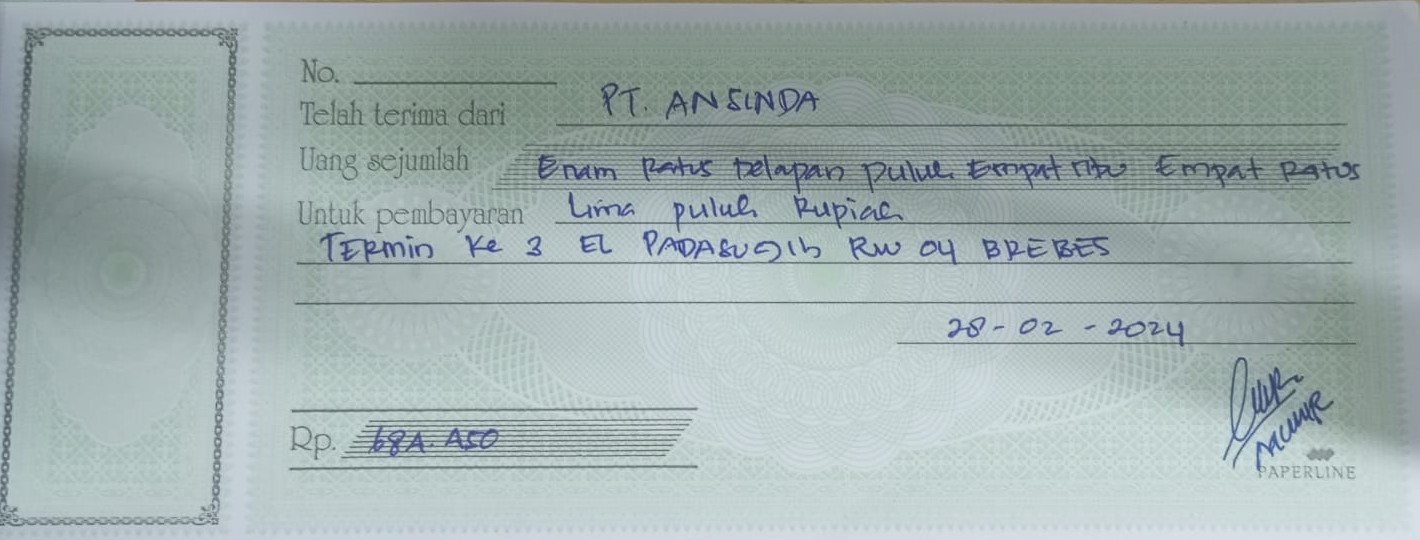 No.
Telah terima dari PT. ANSINDA
Uang sejumlah Enam Ratus Delapan puluh Empat ribu Empat Ratus
Untuk pembayaran Lima puluh Rupiah
TERMIN Ke 3 EL PADASUGIH RW 04 BREBES
28-02-2024
Rp. 684.450
PAPERLINE